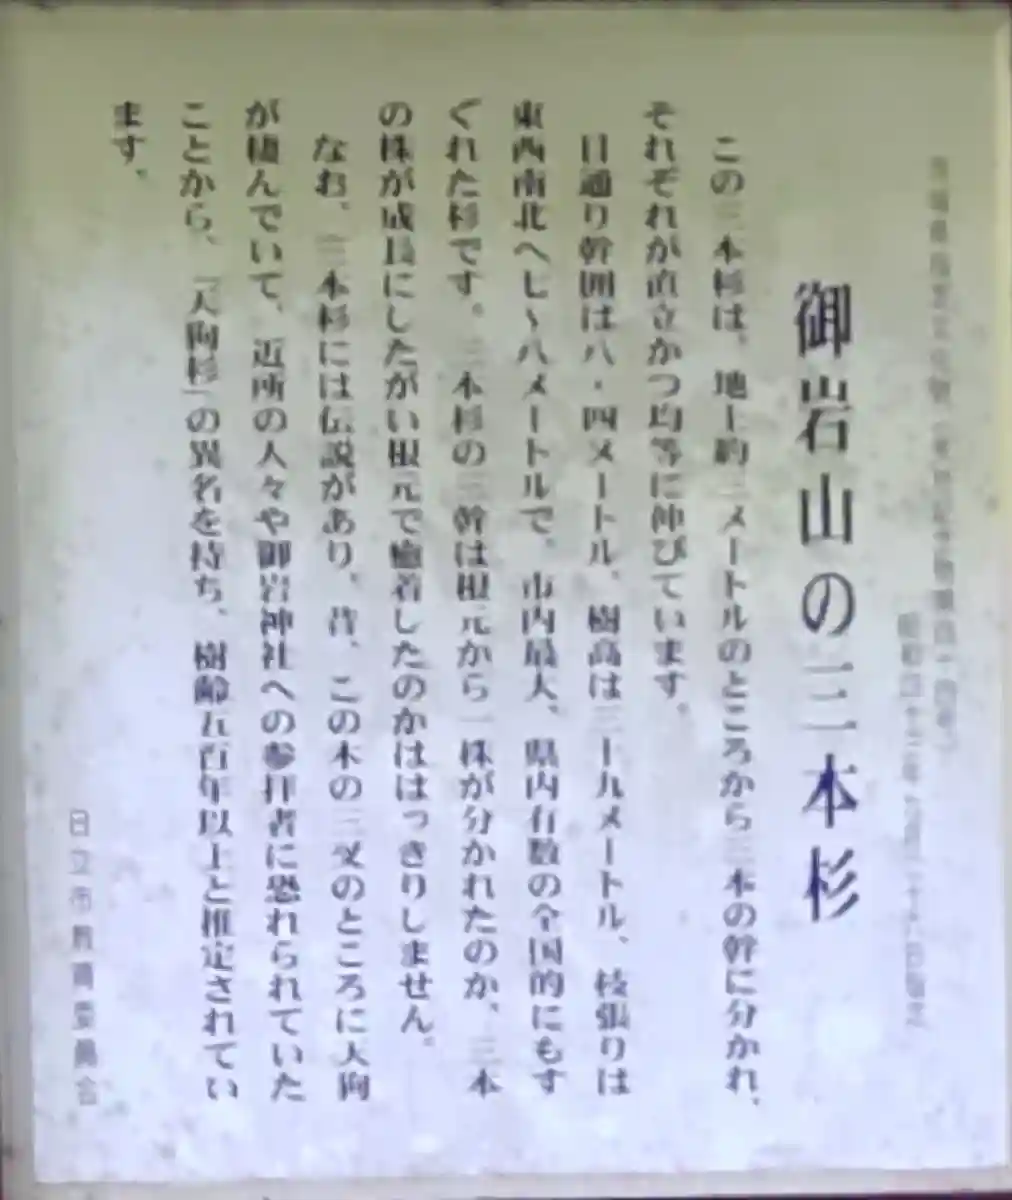 茨城県指定文化財(天然記念物第四十四号)
御岩山の三本杉
この三本杉は、地上約三メートルのところから三本の幹に分かれ、
それぞれが直立かつ均等に伸びています。
目通り幹囲は八・四メートル、樹高は三十九メートル、枝張りは
東西南北へ七〜八メートルで、市内最大、県内有数の全国的にもす
ぐれた杉です。三本杉の三幹は根元から一株が分かれたのか、三本
の株が成長にしたがい根元で癒着したのかははっきりしません。
なお、三本杉には伝説があり、昔、この木の三又のところに天狗
が棲んでいて、近所の人々や御岩神社への参拝者に恐れられていた
ことから、「天狗杉」の異名を持ち、樹齢五百年以上と推定されてい
ます。
日立市教育委員会